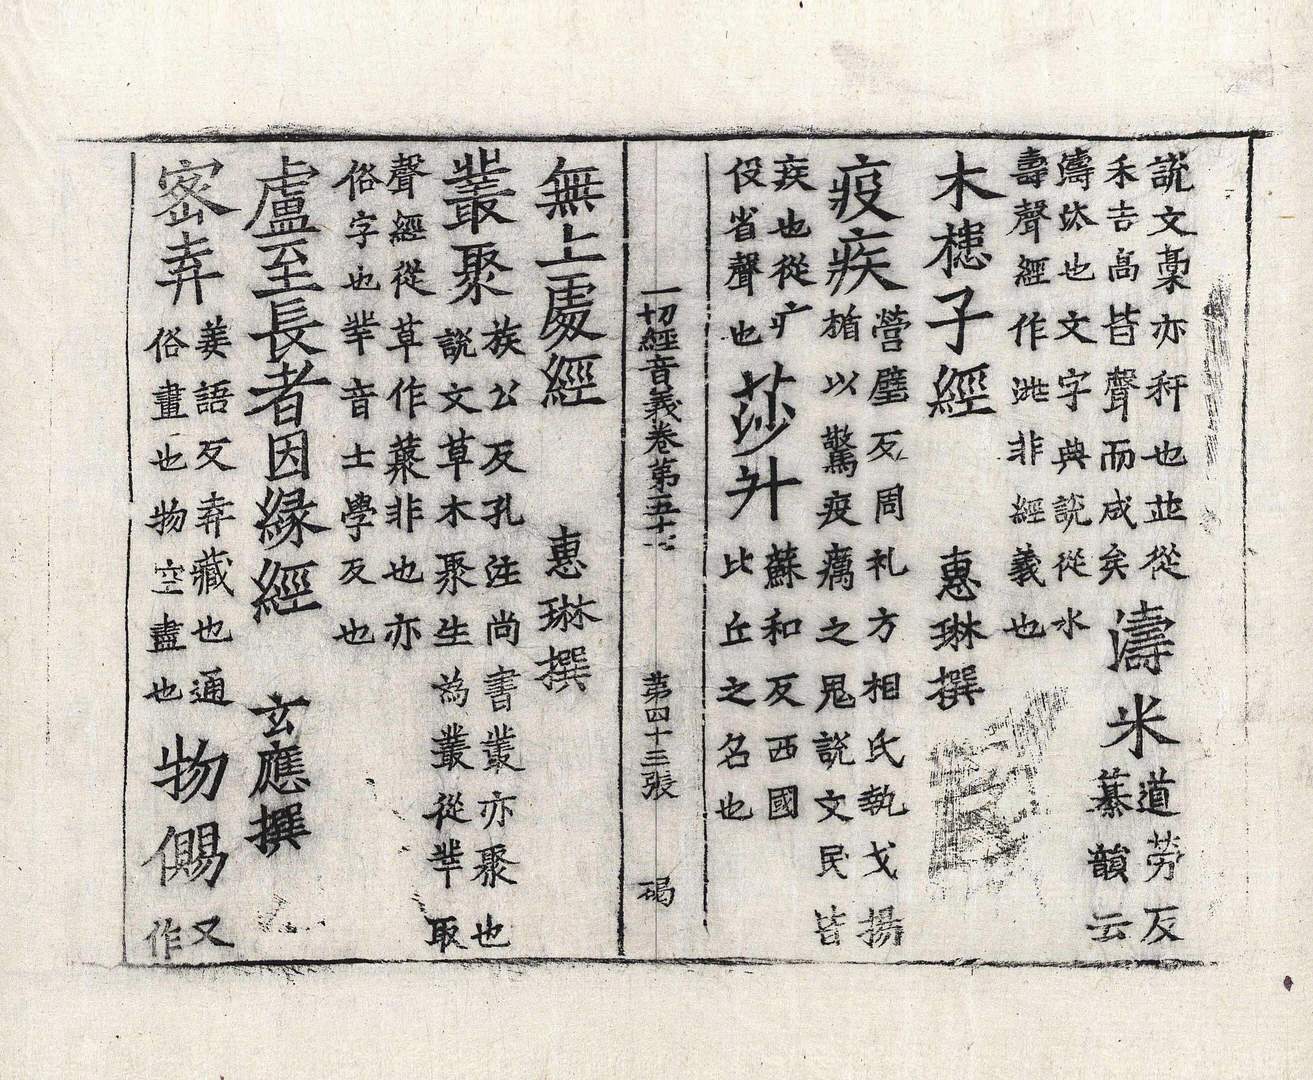 說文稾亦秆也並從
禾吉高皆聲而成矣
濤米
道勞反
綦韻云
濤汰也文字典說從水
壽聲經作洮非經義也
木槵子經 惠琳撰
疫疾
營壁反周礼方相氏執戈揚
楯以驚疫癘之鬼說文民皆
疾也從疒
役省聲也
莎升
蘇和反西國
比丘之名也
一切經音義卷第五十七 第四十三張 碣
無上處經 惠琳撰
叢聚
族公反孔注尚書叢亦聚也
說文草木聚生為叢從丵取
聲經從草作藂非也亦
俗字也丵音士學反也
盧至長者因緣經 玄應撰
密弆
姜語反弆藏也通
俗畫也物空盡也
物賜
又
作